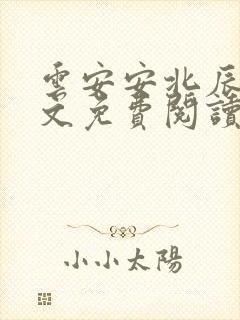 雲安安北辰
文免費閱讀
小小太陽